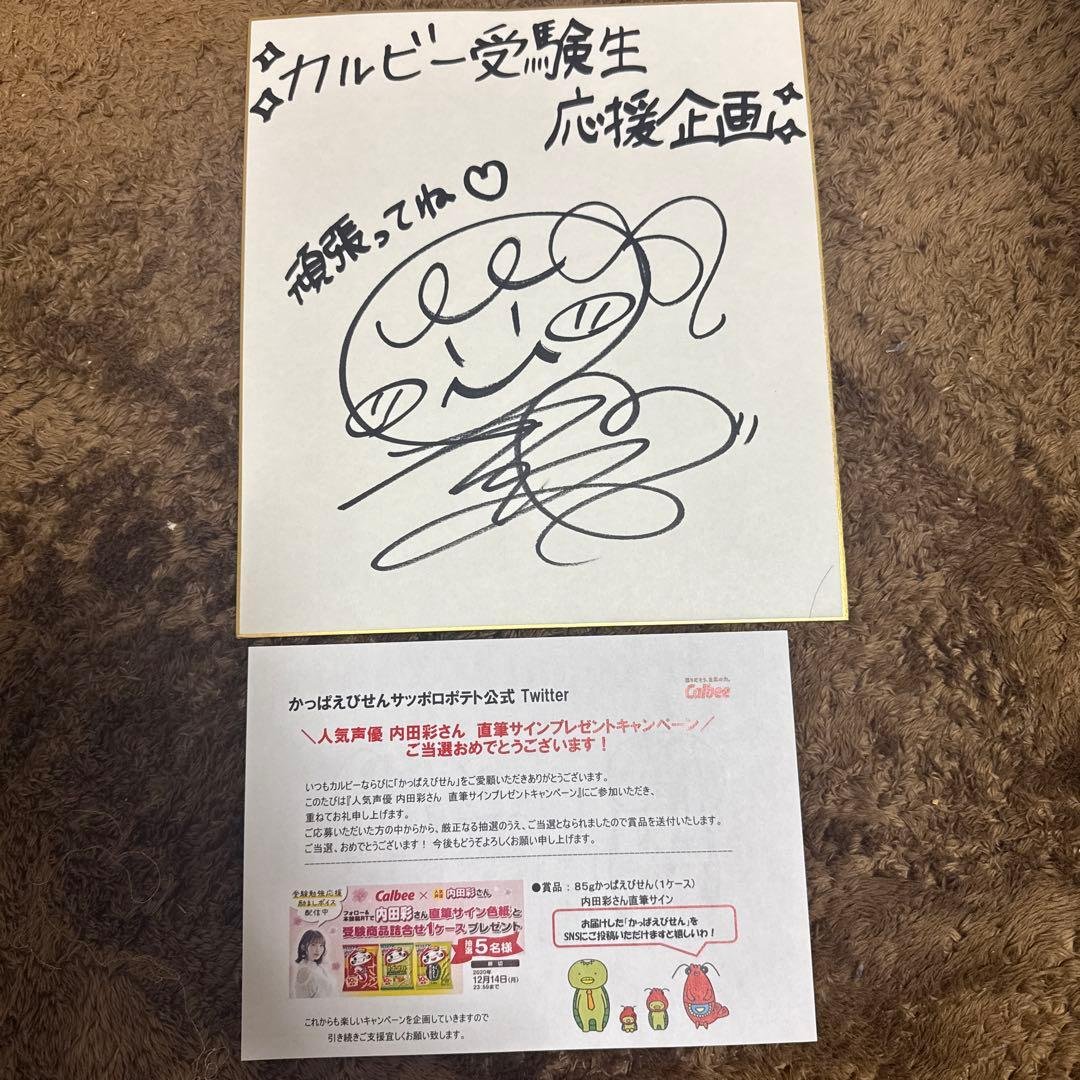 カルビー受験生
応援企画
頑張ってね♡
かっぱえびせんサッポロポテト公式 Twitter
掘りだそう、自然の力。
Calbee
＼人気声優 内田彩さん 直筆サインプレゼントキャンペーン／
ご当選おめでとうございます！
いつもカルビーならびに「かっぱえびせん」をご愛顧いただきありがとうございます。
このたびは『人気声優 内田彩さん 直筆サインプレゼントキャンペーン』にご参加いただき、
重ねてお礼申し上げます。
ご応募いただいた方の中からから、厳正なる抽選のうえ、ご当選となられましたので賞品を送付いたします。
ご当選、おめでとうございます！ 今後もどうぞよろしくお願い申し上げます。
受験勉強応援
励ましボイス
配信中
Calbee × 人気声優 内田彩さん
フォロー＆
本投稿RTで 内田彩さん直筆サイン色紙と
受験商品詰合せ1ケースプレゼント
抽選5名様
締切
2020年
12月14日(月)
23:59まで
●賞品 : 85gかっぱえびせん(1ケース)
内田彩さん直筆サイン
お届けした「かっぱえびせん」を
SNSにご投稿いただけますと嬉しいわ！
これからも楽しいキャンペーンを企画していきますので
引き続きご支援宜しくお願い致します。